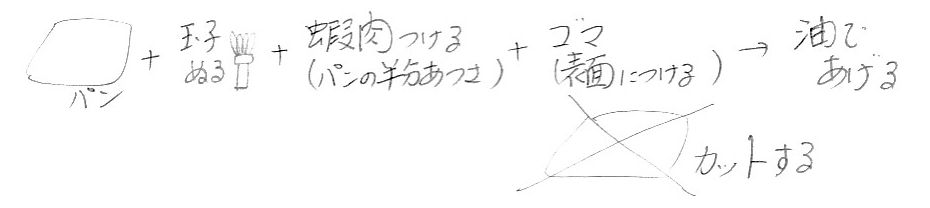 パン
+ 玉子
ぬる
+ 蝦肉つける
(パンの半分あつさ)
+ ゴマ
(表面につける)
→ 油で
あげる
カットする